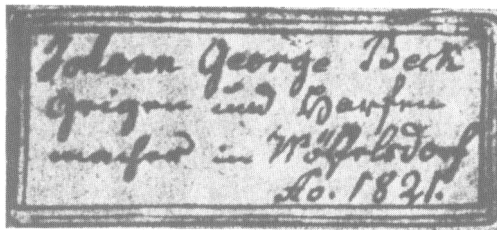 Johann George Beck
Geigen und Harfen
macher in Wölfelsdorf
Ao. 1821.